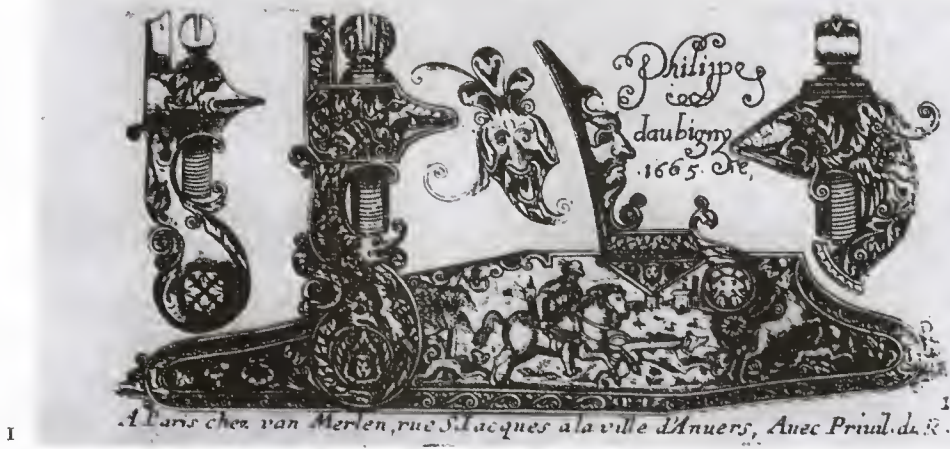 Philippe
daubigny
.1665.
1
A Paris chez van Merlen, rue S. Jacques a la ville d'Anuers, Auec Priuil. du R.
I